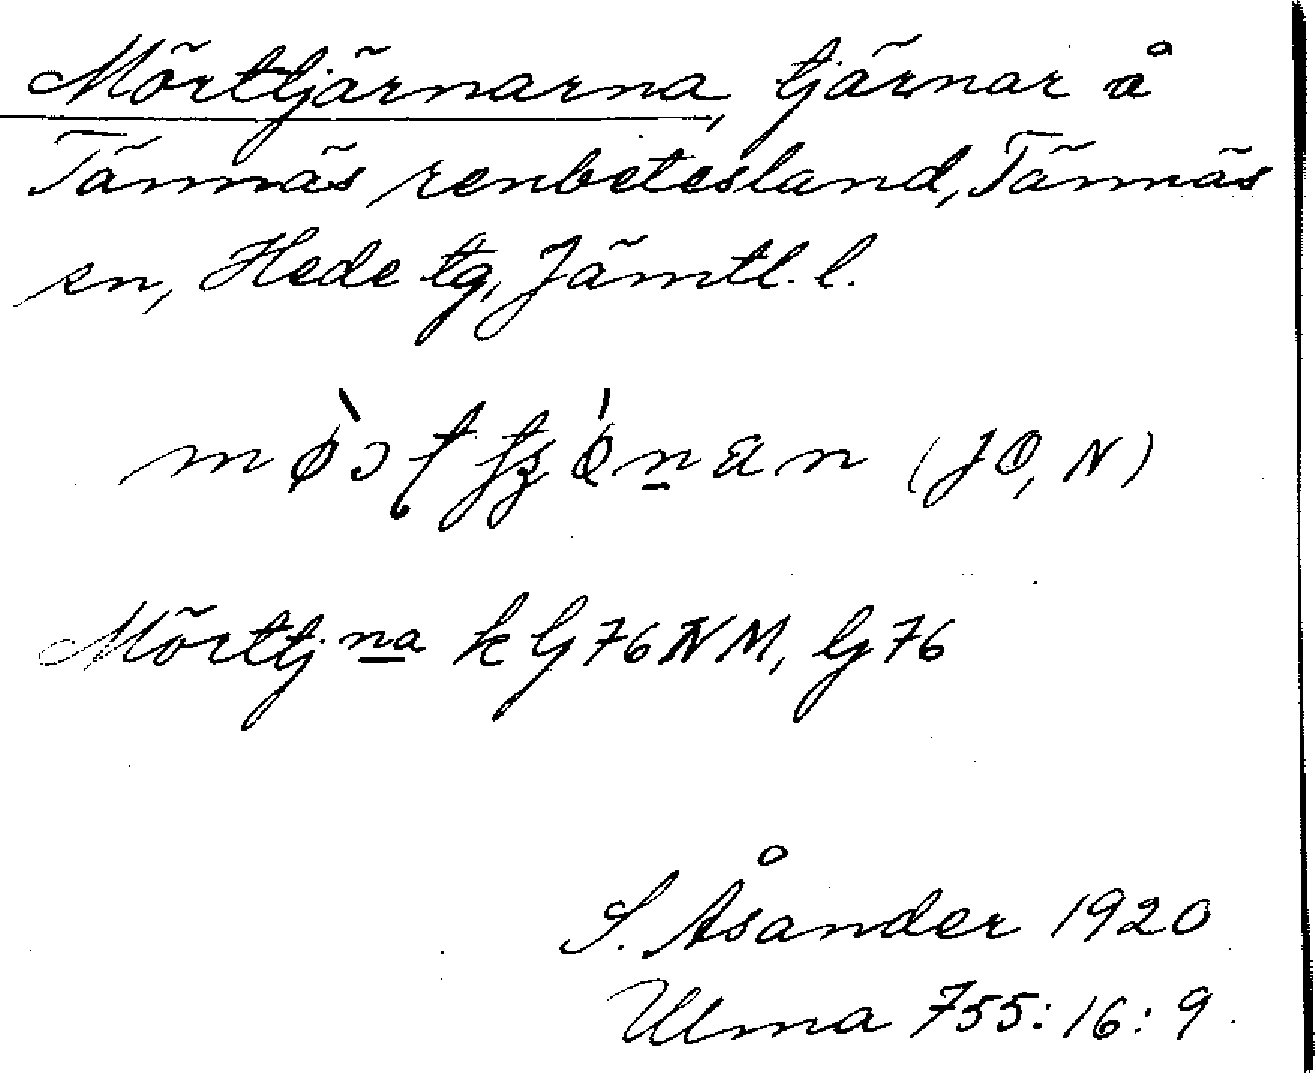 Mörttjärnarna, tjärnar å
Tännäs renbetesland, Tännäs
sn, Hede tg, Jämtl. l.
(JO, N)
Mörttj na k G 76 NM, G 76
S. Åsander 1920
Ulma 755:16:9.